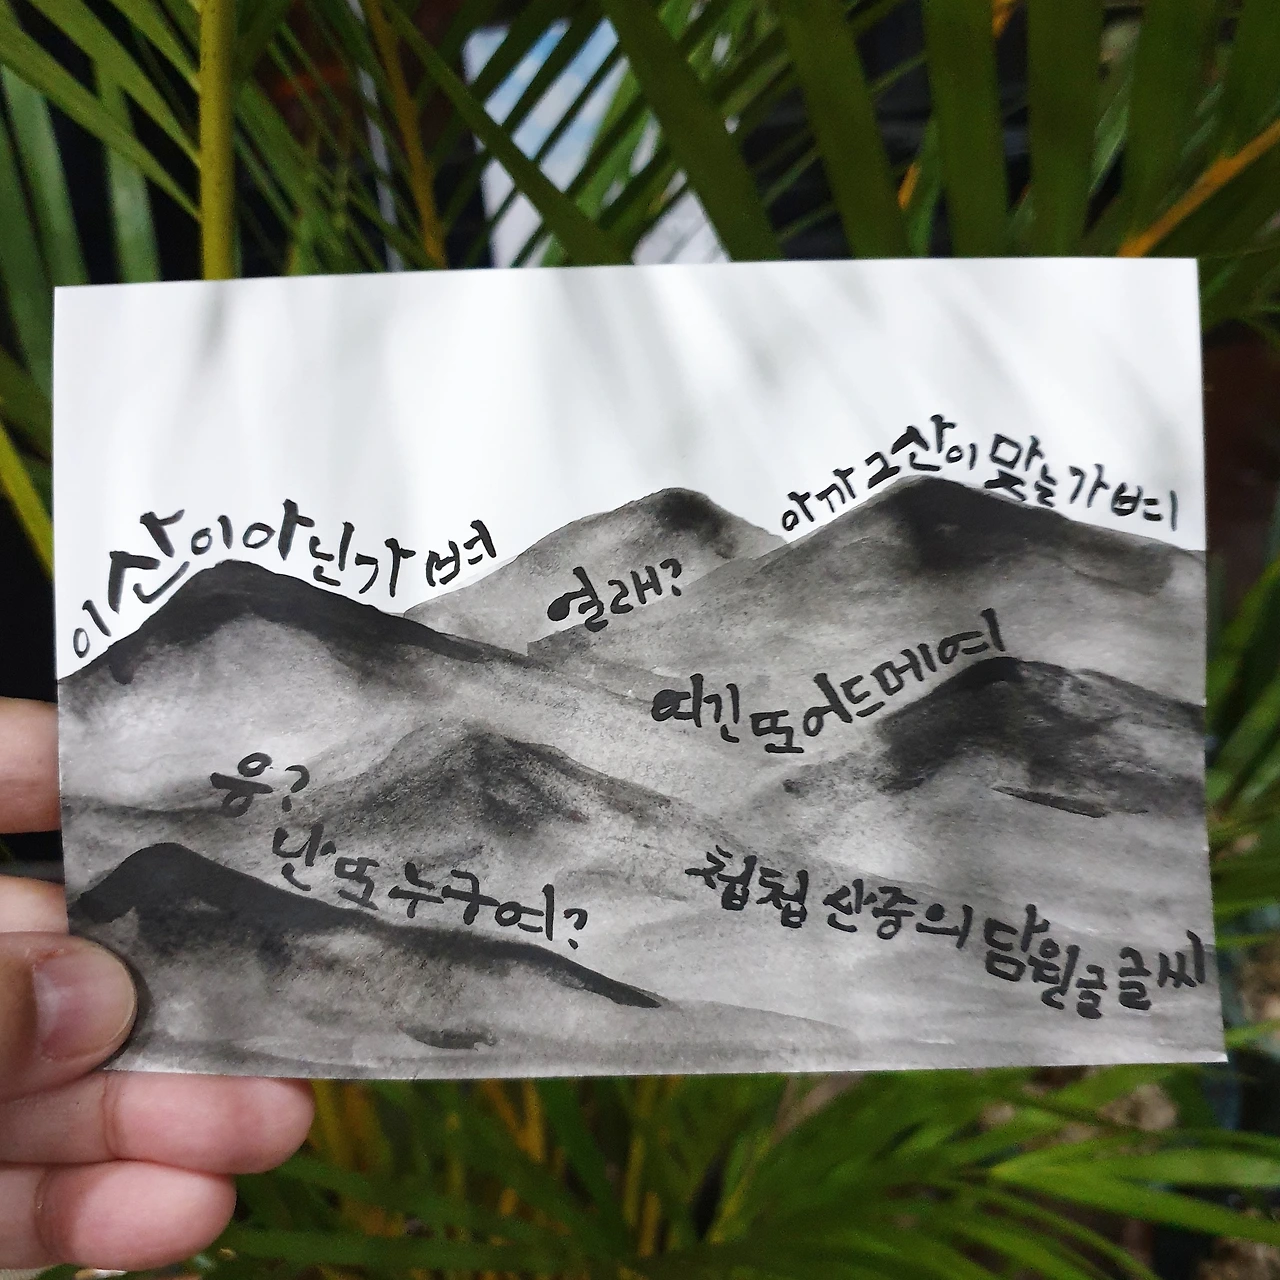 이 산이 아닌가벼
아까 그 산이 맞는가벼
열래?
여긴 또 어드메여
웅?
난 또 누구여?
첩첩 산중의 담원글글씨